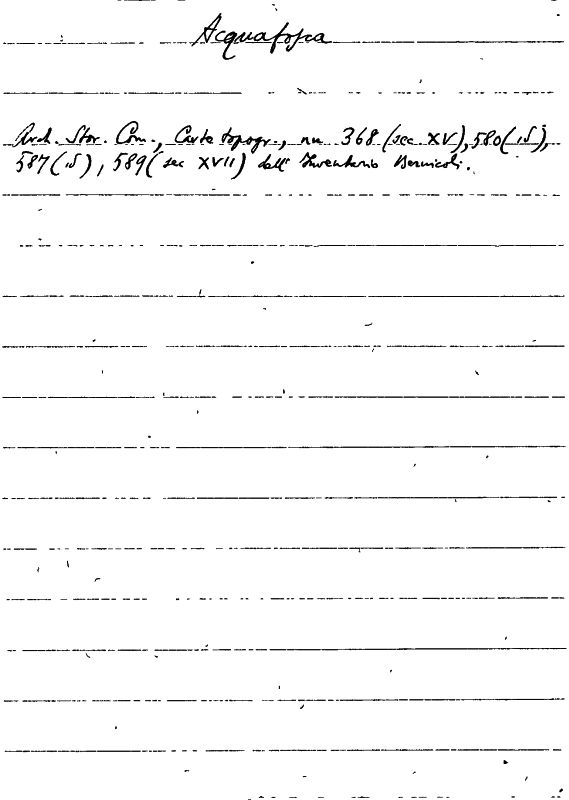 Acquafosca
Arch. Stor. Com., Carte topogr., nn 368 (sec XV), 580 (id),
587 (id), 589 (sec XVII) dell' Inventario Bernicoli.